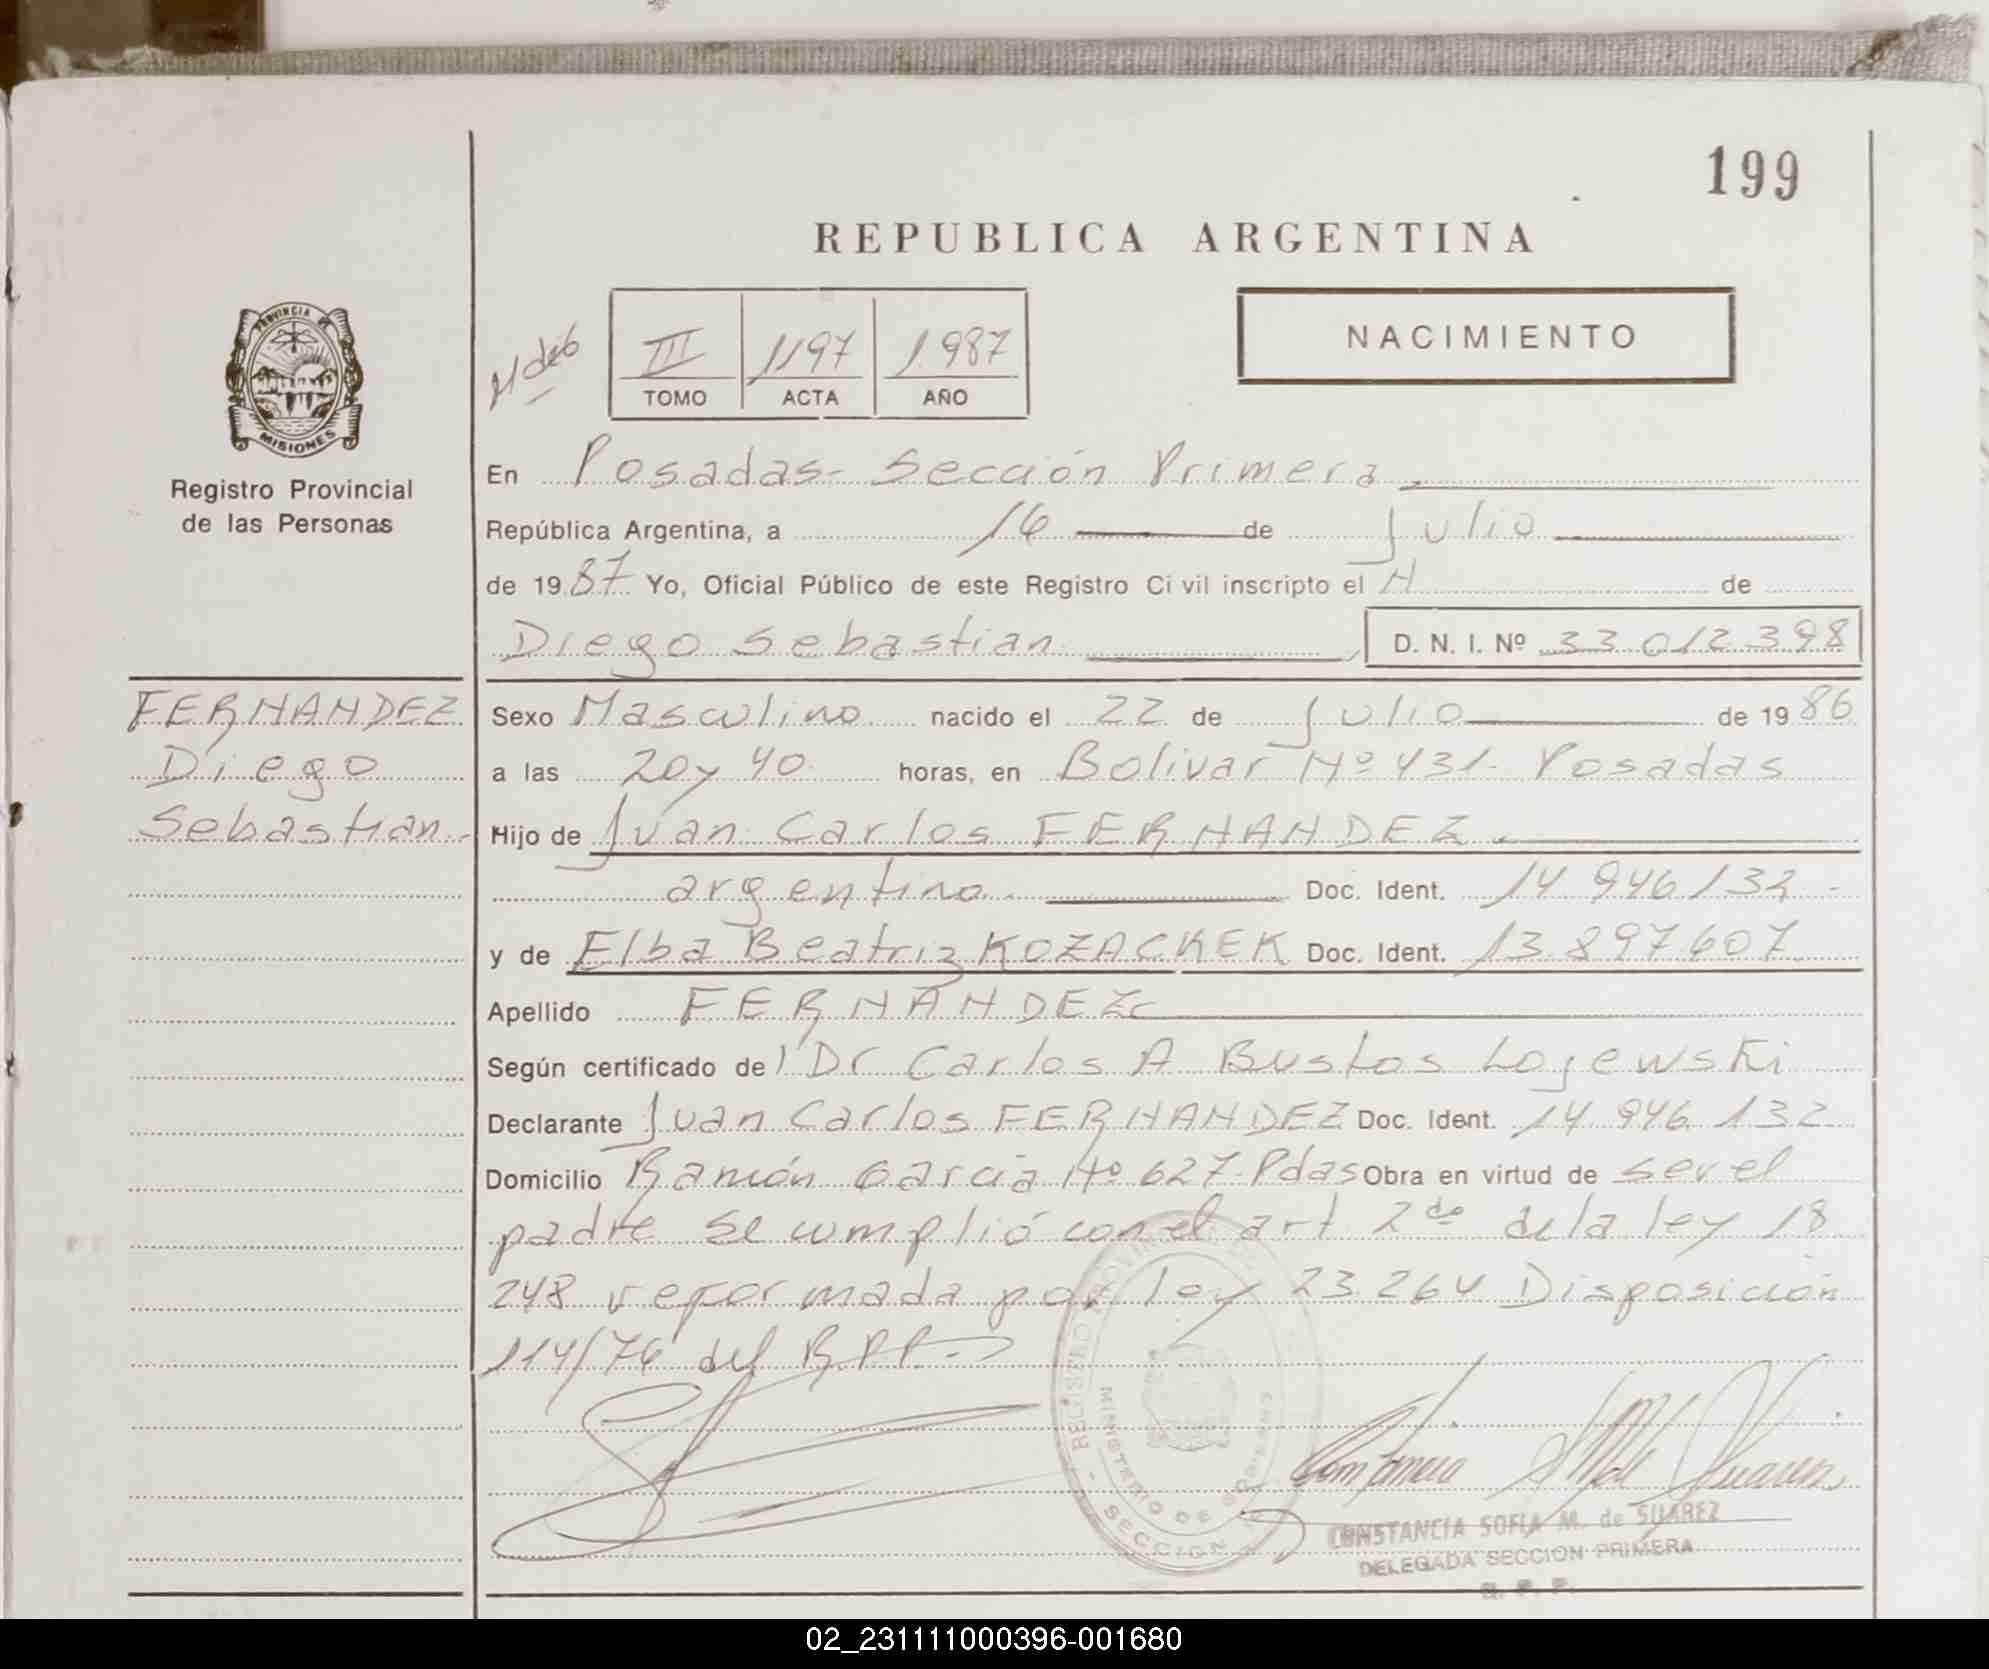 199
REPUBLICA ARGENTINA
PROVINCIA DE
MISIONES
Registro Provincial
de las Personas
III 1197 1.987
TOMO ACTA AÑO
NACIMIENTO
En Posadas- Sección Primera
República Argentina, a 16 de Julio
de 1987 Yo, Oficial Público de este Registro Civil inscripto el N de
Diego Sebastian D. N. I. Nº 33 012 398
FERNANDEZ
Diego
Sebastian
Sexo Masculino nacido el 22 de Julio de 1986
a las 20 y 40 horas, en Bolivar Nº 431- Posadas
Hijo de Juan Carlos FERNANDEZ
argentino Doc. Ident. 14 946 132
y de Elba Beatriz KOZACKEK Doc. Ident. 13 897 607
Apellido FERNANDEZ
Según certificado del Dr Carlos A Bustos Lojewski
Declarante Juan Carlos FERNANDEZ Doc. Ident. 14 946 132
Domicilio Ramón Garcia Nº 627-Pdas Obra en virtud de ser el
padre se cumplió con el art 2do de la ley 18
248 reformada por ley 23.264 Disposición
114/76 del R.P.P.
REGISTRO PROVINCIAL
MINISTERIO DE GOBIERNO
SECCION
CONSTANCIA SOFIA M. de SUAREZ
DELEGADA SECCION PRIMERA
R. P. P.
02_231111000396-001680